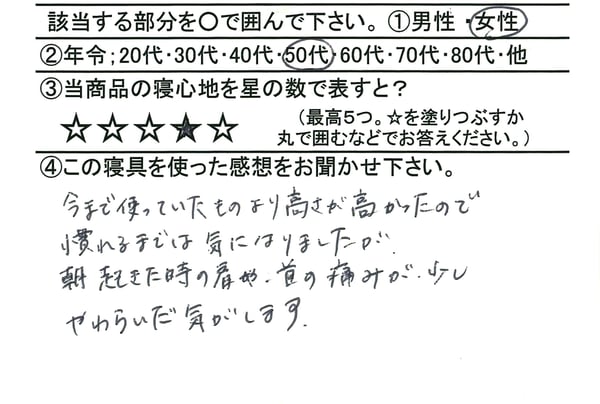 該当する部分を〇で囲んで下さい。①男性・女性
②年令;20代・30代・40代・50代・60代・70代・80代・他
③当商品の寝心地を星の数で表すと？
☆☆☆★☆
(最高5つ。☆を塗りつぶすか
丸で囲むなどでお答えください。)
④この寝具を使った感想をお聞かせ下さい。
今まで使っていたものより高さが高かったので
慣れるまでは気になりましたが、
朝起きた時の肩や、首の痛みが、少し
やわらいだ気がします。